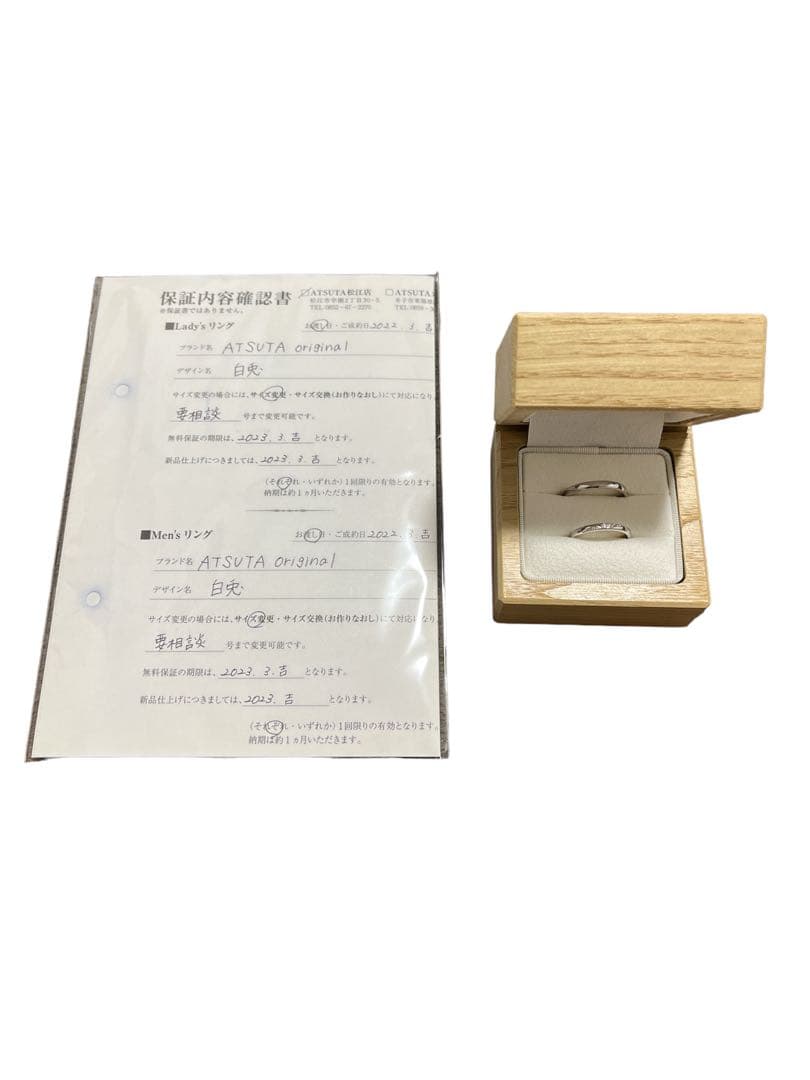 保証内容確認書
※保証書ではありません。
☑ATSUTA松江店
松江市学園2丁目30-5
TEL:0852-47-2270
□ATSUTA
■Lady's リング
お渡し日・ご成約日 2022. 3. 吉
ブランド名 ATSUTA original
デザイン名 白兎
サイズ変更の場合には、サイズ変更・サイズ交換(お作りなおし)にて対応になり
要相談 号まで変更可能です。
無料保証の期限は、2023. 3. 吉 となります。
新品仕上げにつきましては、2023. 3. 吉 となります。
(それぞれ・いずれか)1回限りの有効となります。
納期は約1ヵ月いただきます。
■Men's リング
お渡し日・ご成約日 2022. 3. 吉
ブランド名 ATSUTA original
デザイン名 白兎
サイズ変更の場合には、サイズ変更・サイズ交換(お作りなおし)にて対応にな
要相談 号まで変更可能です。
無料保証の期限は、2023. 3. 吉 となります。
新品仕上げにつきましては、2023. 吉 となります。
(それぞれ・いずれか)1回限りの有効となります。
納期は約1ヵ月いただきます。